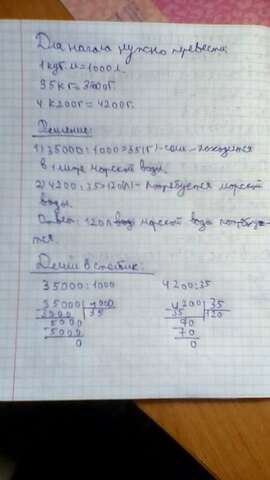 Для начала нужно перевести
1 куб. м = 1000 л.
35 кг = 35000г.
4 кг 200г = 4200г.
Решение:
1) 35000 : 1000 = 35(г) - соли - находится
в 1 литре морской воды.
2) 4200 : 35 = 120(л) - потребуется морской
воды.
Ответ: 120 л морской вода потребуе-
тся.
Делим в столбик:
35000 : 1000 4200 : 35
35000 1000 4200 35
3000 35 35 120
5000 70
5000 70
0 0